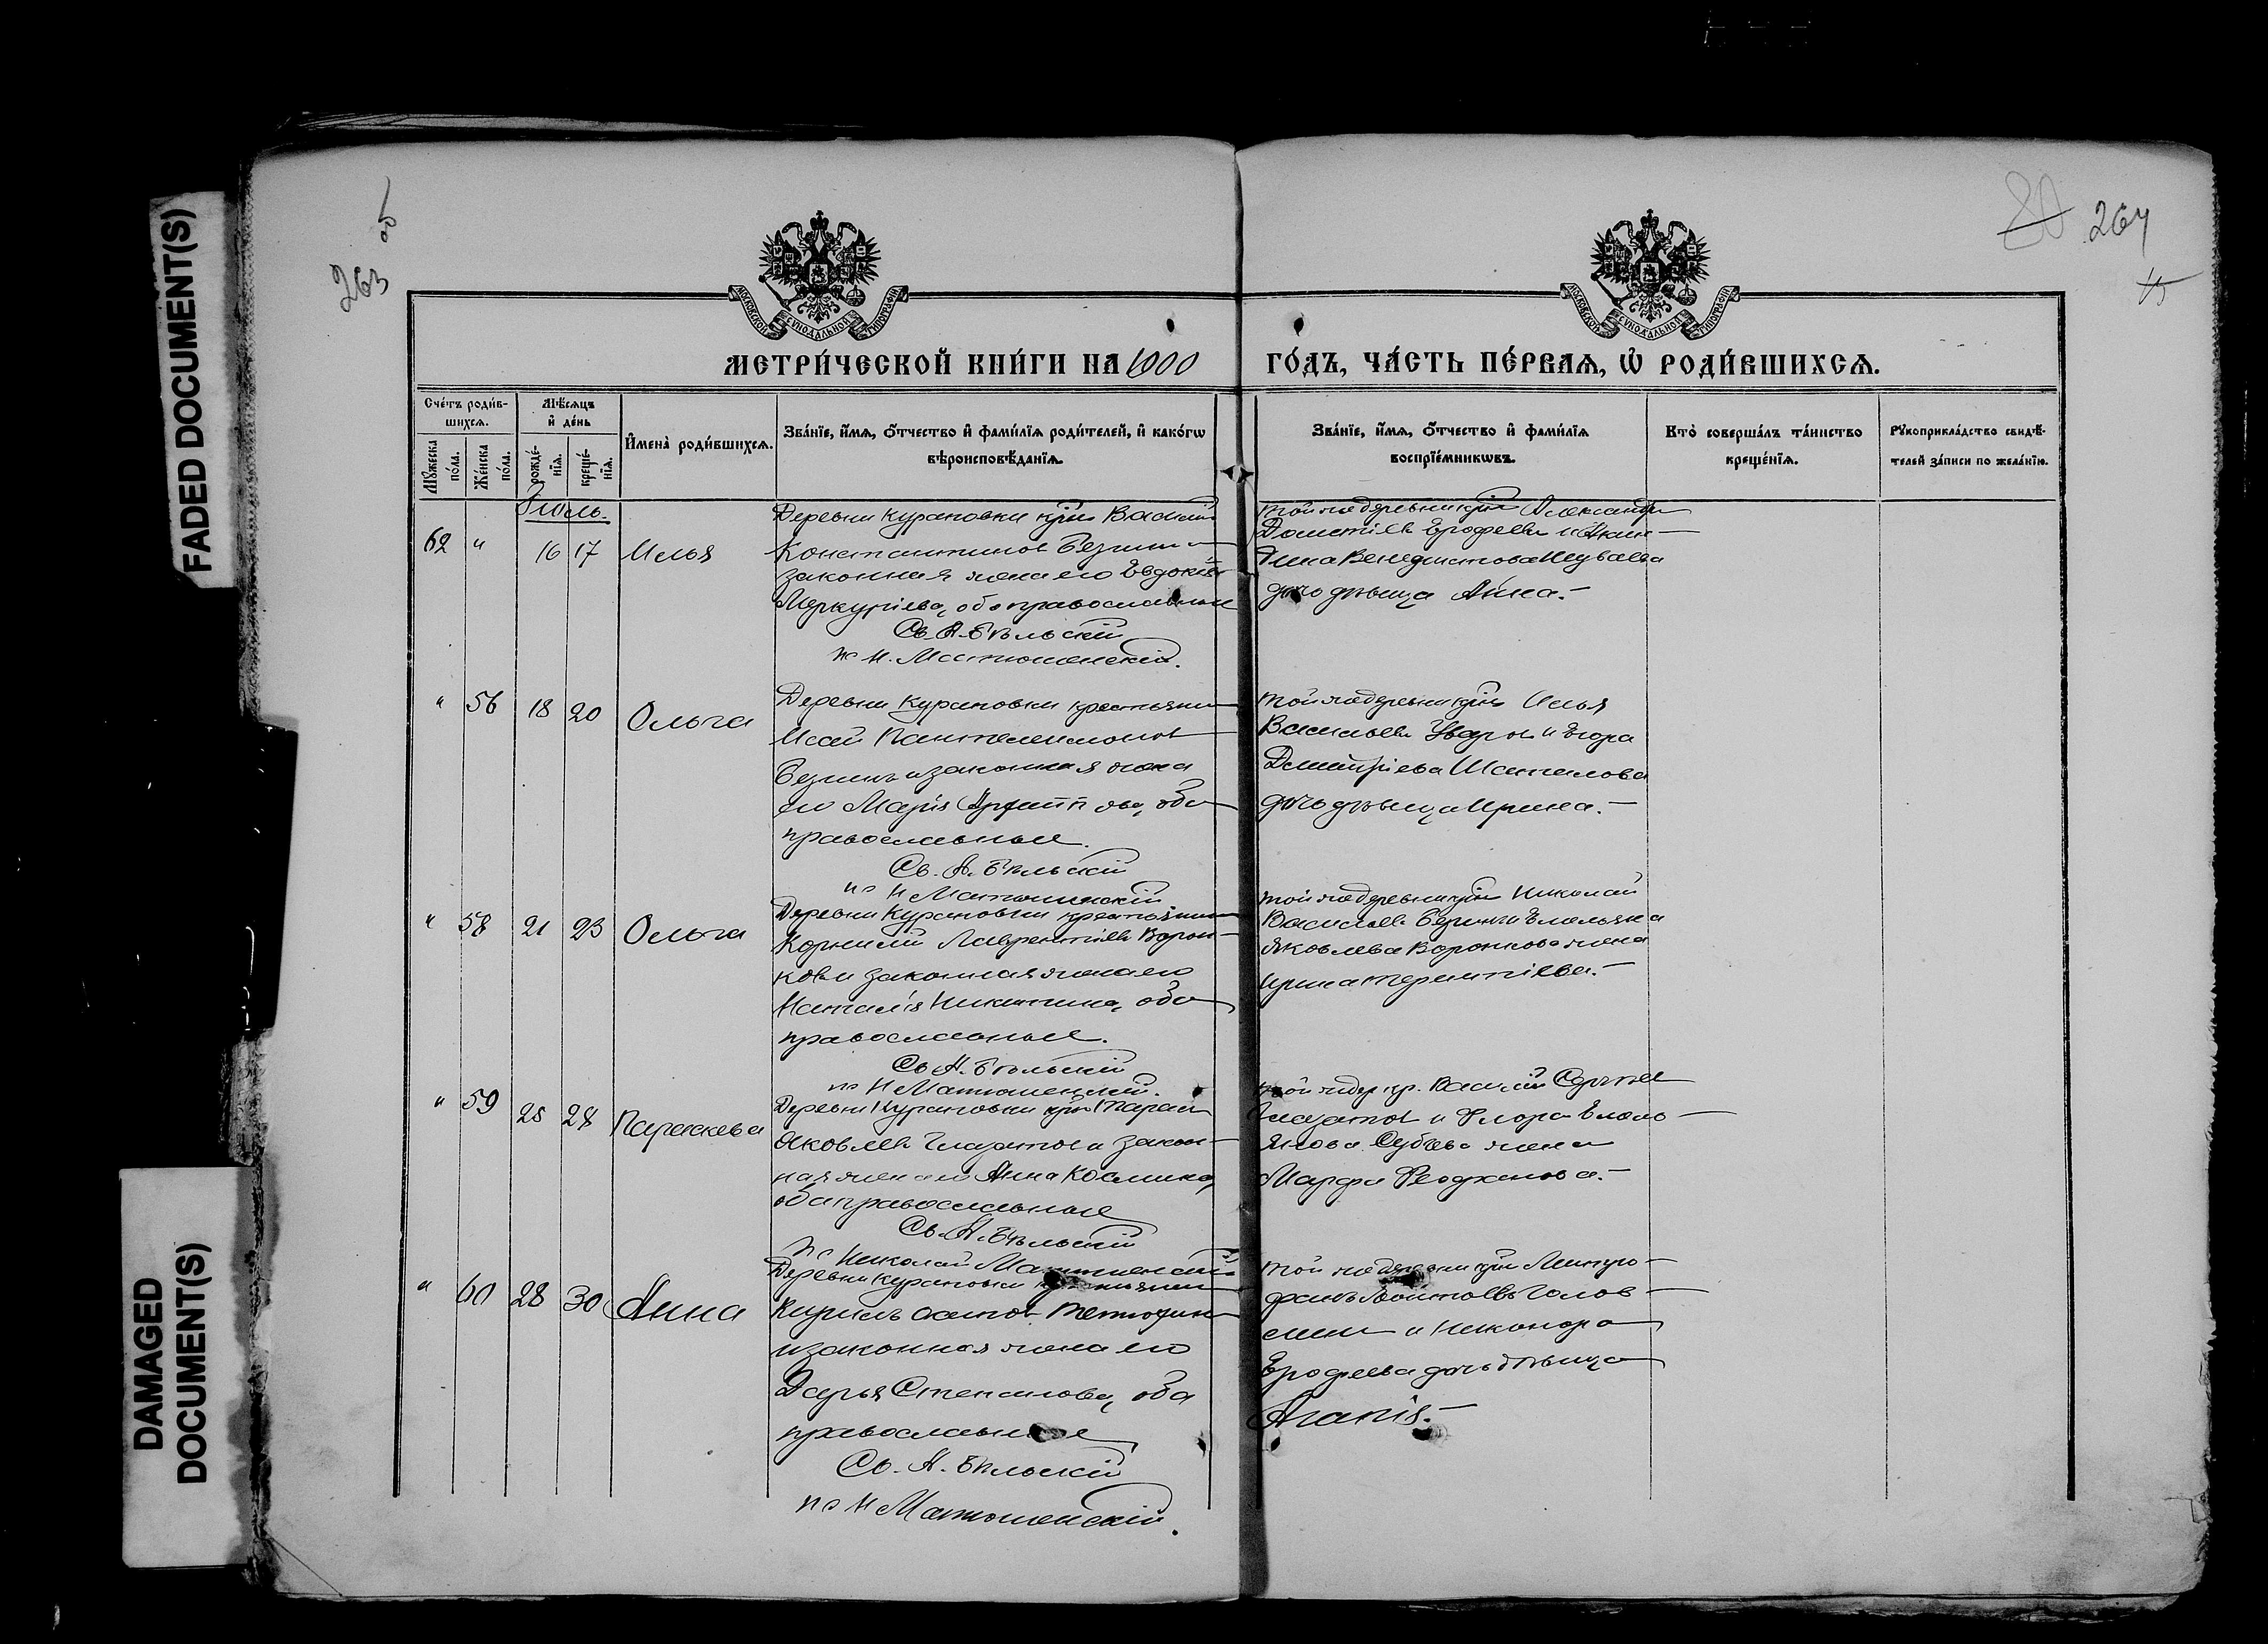 FADED DOCUMENT(S)
DAMAGED
DOCUMENT(S)
263
80 264
МОСКОВСКОЙ СѴНОДАЛЬНОЙ ТИПОГРАФІИ
МОСКОВСКОЙ СѴНОДАЛЬНОЙ ТИПОГРАФІИ
МЕТРИ́ЧЕСКОЙ КНИ́ГИ НА
ГО́ДЪ, ЧА́СТЬ ПЕ́РВАѦ, Ѡ҆ РОДИ́ВШИХСѦ.
Сче́тъ роди́в-
шихсѧ.
Мꙋ́жеска по́ла.
Же́нска по́ла.
Мѣ́сѧцъ
и҆ де́нь
рожде́-
нїѧ.
креще́-
нїѧ.
И҆мена̀ роди́вшихсѧ.
Зва́нїе, и҆́мѧ, ѻ҆́тчество и҆ фами́лїѧ роди́телей, и҆ како́гѡ
вѣроисповѣ́данїѧ.
Зва́нїе, и҆́мѧ, ѻ҆́тчество и҆ фами́лїѧ
воспрїе́мникѡвъ.
Кто̀ соверша́лъ та́инство
креще́нїѧ.
Рꙋкоприкла́дство свидѣ́-
телей за́писи по жела́нїю.
Іюль.
62 " 16 17 Илья
Деревни Курановки кр҃нъ Василій
Константиновъ Безинъ и
законная жена его Евдокія
Меркуріева, оба православные
Св. А. Бѣльскій
пс Н. Матюшенскій.
той же деревни кр҃нъ Александръ
Дометіевъ Ерофеевъ и
Венедиктова
дочь дѣвица Анна.-
" 56 18 20 Ольга
Деревни Курановки крестьянинъ
Исай Пантелеимоновъ
Безинъ и законная жена
его Марія оба
православные.
Св. А. Бѣльскій
пс Н Матюшенскій
той же деревни кр҃нъ Илья
Васильевъ Уваровъ и Егора
Дмитріева Шапилова
дочь дѣвица Ирина.-
" 58 21 23 Ольга
Деревни Курановки крестьянинъ
Корнилій Лаврентіевъ Ворон-
ковъ и законная жена его
Наталія Никитина, оба
православные.
Св А. Бѣльскій
пс Н Матюшенскій.
той же деревни кр҃нъ Николай
Васильевъ Безинъ и Емельяна
Яковлева Воронкова жена
Ирина Терентіева.-
" 59 25 28 Параскева
Деревни Курановки кр҃нъ Тарасъ
Яковлевъ и закон-
ная жена его Анна Космина,
оба православные
Св. А. Бѣльскій
пс Николай Матюшенскій
той же дер кр. Василій Сергѣевъ
и Флора Емель-
янова жена
Марфа Феофанова.-
" 60 28 30 Анна
Деревни Курановки крестьянинъ
Кириллъ
и законная жена его
Дарья Степанова, оба
православные
Св. А. Бѣльскій
пс Н Матюшенскій.
той же деревни кр҃нъ Митро-
фанъ Голов-
и Никанора
Ерофеева дочь дѣвица
Агапія.-